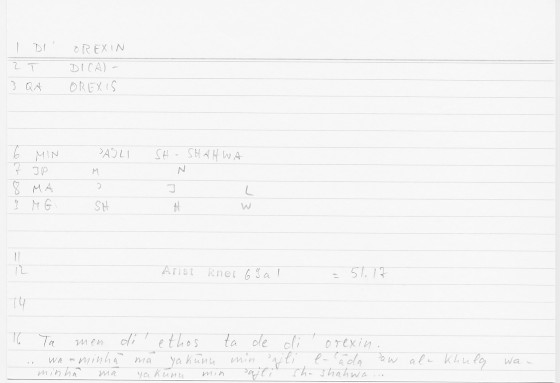 1 DI' OREXIN
2 T DI(A)-
3 QA OREXIS
6 MIN ʾAJLI SH-SHAHWA
7 JP M N
8 MA ʾ J L
9 MG. SH H W
11
12 Arist Rhet 69a1 = 51.17
14
16 Ta men di' ethos ta de di' orexin.
.. wa-minhā mā yakūnu min ʾajli l-ʿāda ʾaw al-khulq wa-
minhā mā yakūnu min ʾajli sh-shahwa...